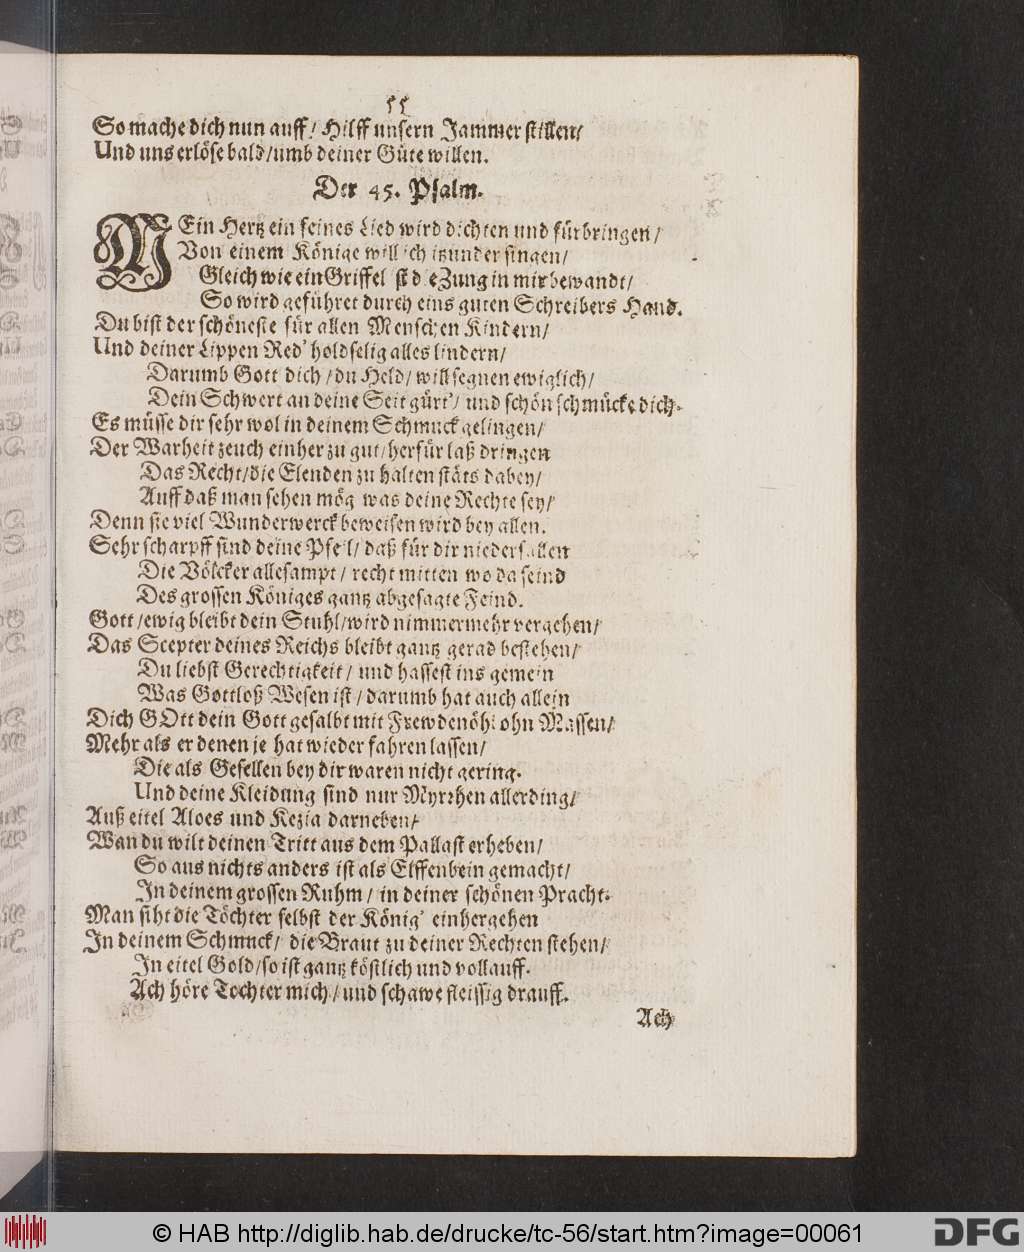 55
So mache dich nun auff / Hilff unsern Jammer stillen /
Und uns erlöse bald / umb deiner Güte willen.
Der 45. Psalm.
MEin Hertz ein feines Lied wird dichten und fürbringen /
Von einem Könige will ich itzunder singen /
Gleich wie ein Griffel ist die Zung in mir bewandt /
So wird geführet durch eins guten Schreibers Hand.
Du bist der schöneste für allen Menschen Kindern /
Und deiner Lippen Red' holdselig alles lindern /
Darumb Gott dich / du Held / will segnen ewiglich /
Dein Schwert an deine Seit gürt' / und schön schmücke dich.
Es müsse dir sehr wol in deinem Schmuck gelingen /
Der Warheit zeuch einher zu gut / herfür laß dringen
Das Recht / die Elenden zu halten stäts dabey /
Auff daß man sehen mög was deine Rechte sey /
Denn sie viel Wunderwerck beweisen wird bey allen.
Sehr scharpff sind deine Pfeil / daß für dir niederfallen
Die Völcker allesampt / recht mitten wo da seind
Des grossen Königes gantz abgesagte Feind.
Gott / ewig bleibt dein Stuhl / wird nimmermehr vergehen /
Das Scepter deines Reichs bleibt gantz gerad bestehen /
Du liebst Gerechtigkeit / und hassest ins gemein
Was Gottloß Wesen ist / darumb hat auch allein
Dich GOtt dein Gott gesalbt mit Frewdenöhl ohn Massen /
Mehr als er denen je hat wiederfahren lassen /
Die als Gesellen bey dir waren nicht gering.
Und deine Kleidung sind nur Myrrhen allerding /
Auß eitel Aloes und Kezia darneben /
Wan du wilt deinen Tritt aus dem Pallast erheben /
So aus nichts anders ist als Elffenbein gemacht /
In deinem grossen Ruhm / in deiner schönen Pracht.
Man siht die Töchter selbst der König' einhergehen
In deinem Schmuck / die Braut zu deiner Rechten stehen /
In eitel Gold / so ist gantz köstlich und vollauff.
Ach höre Tochter mich / und schawe fleissig drauff.
Ach
© HAB http://diglib.hab.de/drucke/tc-56/start.htm?image=00061
DFG